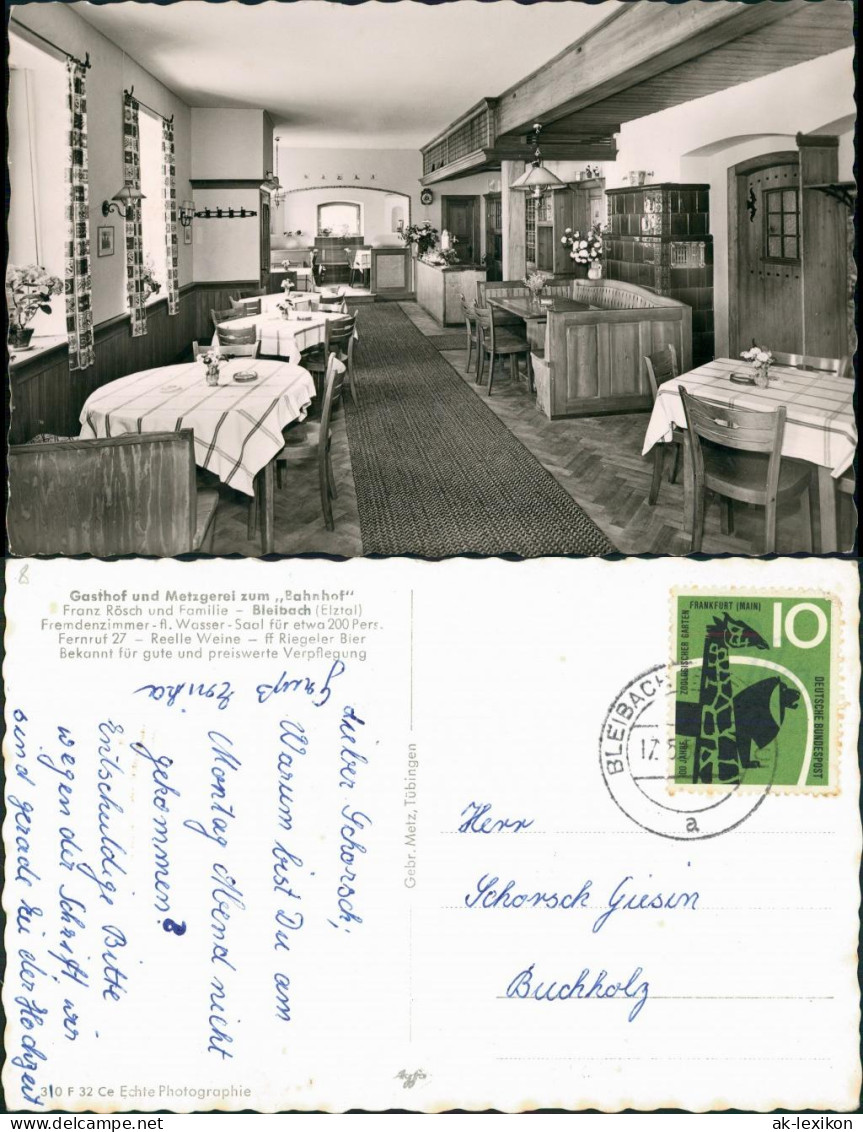 Gasthof und Metzgerei zum „Bahnhof“
Franz Rösch und Familie – Bleibach (Elztal)
Fremdenzimmer - fl. Wasser - Saal für etwa 200 Pers.
Fernruf 27 – Reelle Weine – ff Riegeler Bier
Bekannt für gute und preiswerte Verpflegung
Lieber Schorsch,
Warum bist Du am
Montag Abend nicht
gekommen?
Entschuldige Bitte
wegen der Schrift wir
sind gerade bei der Hochzeit
Gruß
310 F 32 Ce Echte Photographie
Gebr. Metz, Tübingen
Agfa
100 JAHRE ZOOLOGISCHER GARTEN
FRANKFURT (MAIN)
10
DEUTSCHE BUNDESPOST
BLEIBACH
17.
a
Herr
Schorsch Giesin
Buchholz
8
www.ansichtskarten-lexikon.de
ak-lexikon